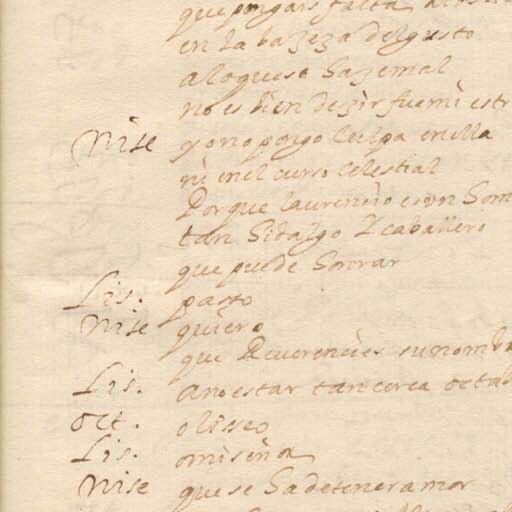 que pongais falta
en la bazeza del gusto
a lo que se haze mal
no es bien dezir fue mi estr
Nise yo no pongo culpa en ella
ni en el curso celestial
Porque laurencio es un hom
tan hidalgo y caballero
que puede honrar
Lis. passo
Nise quiero
que Reuerencies su nombr
Lis. a no estar tan cerca octab
Oct. o liseo
Lis. o mi señor
Nise que se ha de tener amor